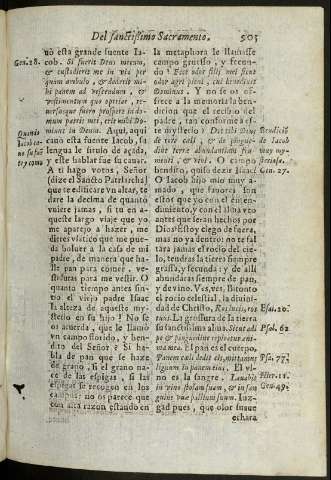 Del sanctissimo Sacramento. 503
no està grande fuente Ia-
cob. Si fuerit Deus mecum,
& custodierit me in via per
quam ambulo, & dederit mi-
hi panem ad vescendum, &
vestimentum quo operiar, re-
versusque fuero prospere in do-
mum patris mei, erit mihi Do-
minus in Deum. Aqui, aqui
cano esta fuente Iacob, su
lengua le siruio de açada,
y este hablar fue su cauar.
A ti hago votos, Señor
(dize el Sancto Patriarcha)
que te edificare vn altar, te
dare la decima de quanto
vuiere jamas, si tu en a-
queste largo viaje que yo
me aparejo a hazer, me
dieres viatico que me pue-
da boluer a la casa de mi
padre, de manera que ha-
lle pan para comer, ve-
stiduras para me vestir. O
quanto tiempo antes sin-
tio el viejo padre Isaac
la alteza de aqueste my-
sterio en su hijo? No se
os acuerda, que le llamò
vn campo florido, y ben-
dito del Señor? Si ha-
bla de pan que se haze
de grano, si el grano na-
ce de las espigas, si las
espigas se recogen en los
campos: no os parece que
con alta razon estando en
la metaphora le llamasse
campo gruesso, y fecun-
do? Ecce odor filij mei sicut
odor agri pleni, cui benedixit
Dominus. Y no se os
ofrece a la memoria la ben-
dicion que el recibio del
padre, tan conforme à es-
te mysterio? Det tibi Deus
de rore cœli, & de pingue-
dine terræ abundantiam fru-
menti, & vini. O campo
bendito, quiso dezir Isaac
O Iacob hijo mio muy a-
mado, que fauores son
estos que yo con el enten-
dimiento, y con el alma veo
antes que sean hechos por
Dios? Estoy ciego de fuera,
mas no ya dentro: no te fal-
tarà jamas el rocio del cie-
lo, tendras la tierra siempre
grassa, y fecunda: y de alli
abundaràs siempre de pan,
y de vino. Ves, ves, Bitonto
el rocio celestial, la diuini-
dad de Christo,
su sanctissima alma. Sicut adi-
pe & pinguedine repleatur ani-
ma mea. El pan es el cuerpo,
Panem cæli dedit eis,
El vi-
no es la sangre. Lauabit
in vino stolam suam, & in san-
guine vuæ pallium suum. Iuz-
gad pues, que olor suaue
echara
Gen. 28.
Quanto
Iacob ca-
no su fuē
te y como
Bendiciō
de Iacob
Gen. 27.
Psal. 62
Psa. 77.
Gen. 49.